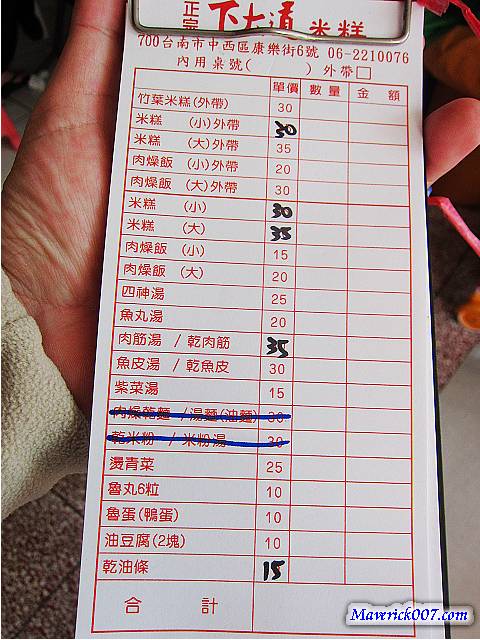 正宗 下大道 米糕
700台南市中西區康樂街6號 06-2210076
內用桌號( ) 外帶□
單價 數量 金額
竹葉米糕(外帶) 30
米糕 (小)外帶 30
米糕 (大)外帶 35
肉燥飯 (小)外帶 20
肉燥飯 (大)外帶 30
米糕 (小) 30
米糕 (大) 35
肉燥飯 (小) 15
肉燥飯 (大) 20
四神湯 25
魚丸湯 20
肉筋湯 / 乾肉筋 35
魚皮湯 / 乾魚皮 30
紫菜湯 15
肉燥乾麵 / 湯麵(油麵) 30
乾米粉 / 米粉湯 30
燙青菜 25
魯丸6粒 10
魯蛋(鴨蛋) 10
油豆腐(2塊) 10
乾油條 15
合計
Maverick007.com